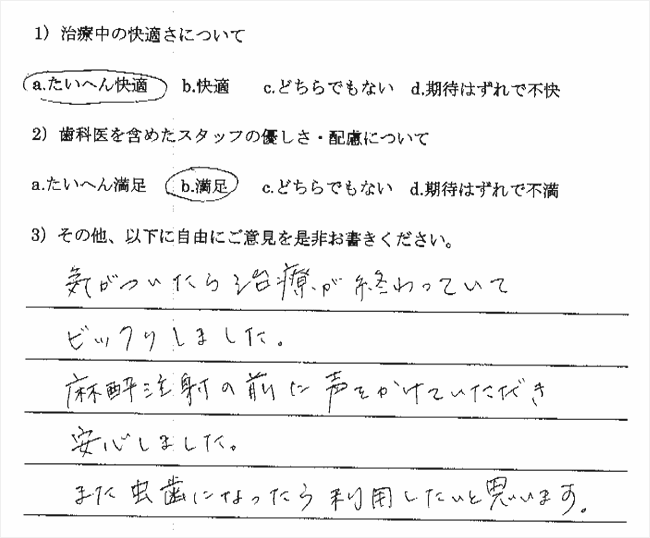 1）治療中の快適さについて
a.たいへん快適 b.快適 c.どちらでもない d.期待はずれで不快
2）歯科医を含めたスタッフの優しさ・配慮について
a.たいへん満足 b.満足 c.どちらでもない d.期待はずれで不満
3）その他、以下に自由にご意見を是非お書きください。
気がついたら治療が終わっていて
ビックリしました。
麻酔注射の前に声をかけていただき
安心しました。
また虫歯になったら利用したいと思います。